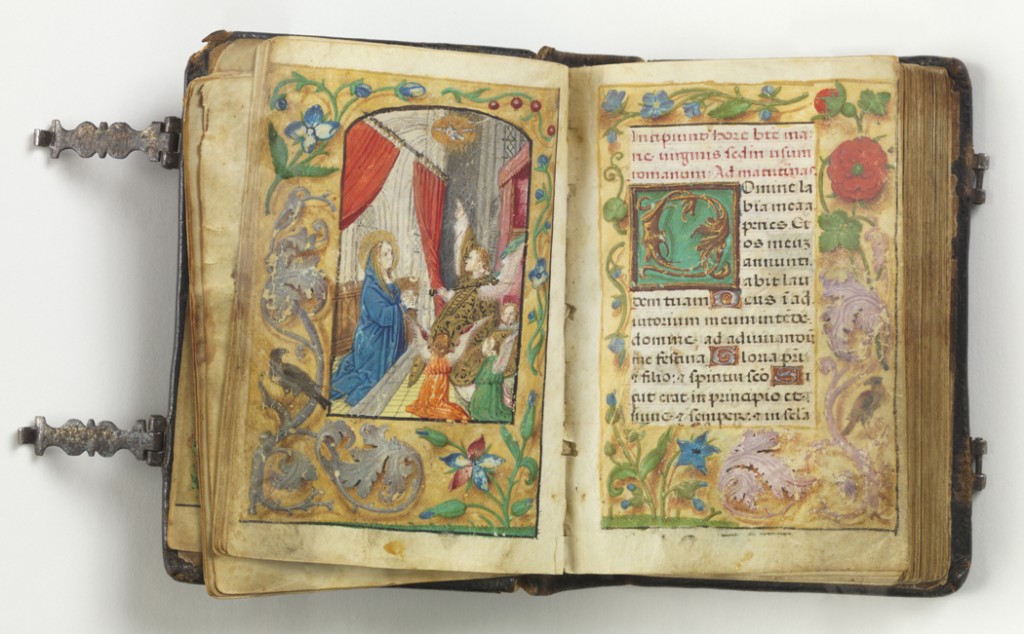 Incipiunt hore bte ma
rie virginis scdm usum
romanum. Ad matutinas
Domine la
bia mea a
peries. Et
os meuz
annunti
abit lau
dem tuam Deus i ad
iutorium meum intede
domine ad adiuvandu
me festina Gloria pri
et filio: et spiritui sco Si
cut erat in principio et
nunc et semper et in secla